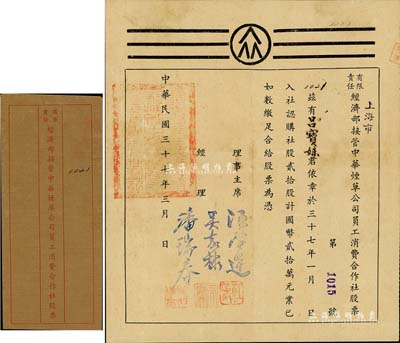 上海市
有限
責任
經濟部接管中華煙草公司員工消費合作社股票
第 1015 號
1021
茲有呂寶妹君依章於三十七年一月 日
入社認購社股貳拾股計國幣貳拾萬元業已
如數繳足合給股票為憑
理事主席
經理
潘瑞春
中華民國三十七年三月 日
有限
責任
經濟部接管中華煙草公司員工消費合作社股票
1021